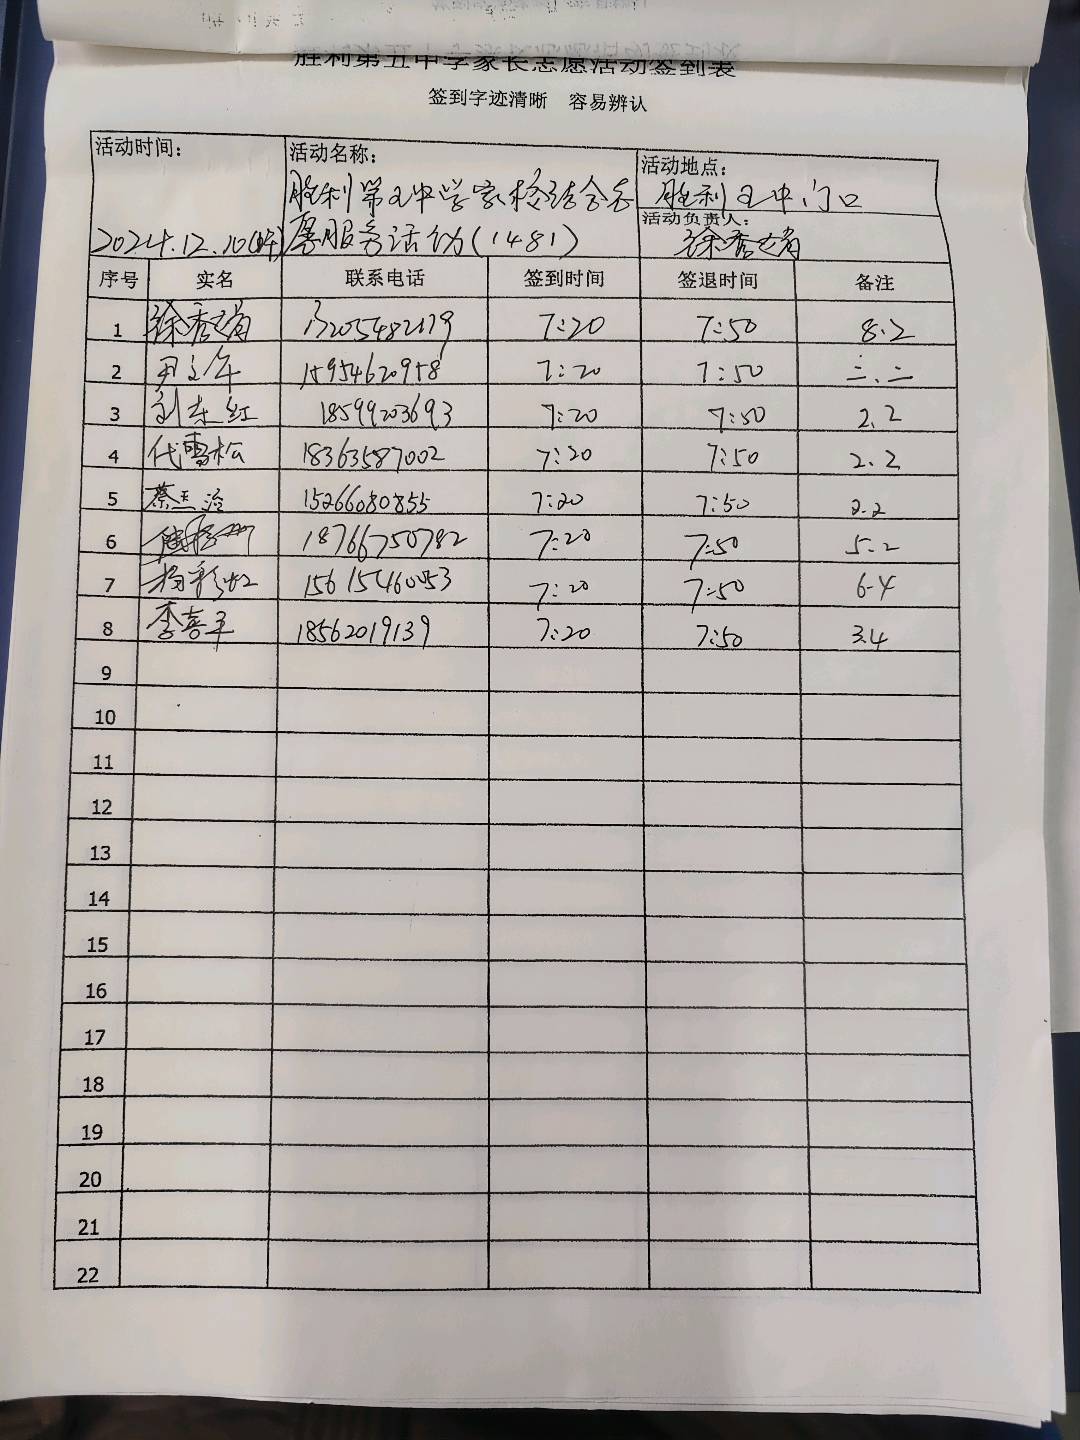 胜利第五中学家长志愿活动签到表
签到字迹清晰 容易辨认
活动时间： 活动名称： 活动地点：
胜利第五中学家校结合志 胜利五中门口
活动负责人：
2024.12.10 愿服务活动(1481) 徐秀娟
序号 实名 联系电话 签到时间 签退时间 备注
1 徐秀娟 13205482179 7:20 7:50 8.2
2 尹立军 15954620958 7:20 7:50 二.二
3 刘东红 18599203693 7:20 7:50 2.2
4 代雪松 18363587002 7:20 7:50 2.2
5 蔡玉治 15266080855 7:20 7:50 2.2
6 18766750782 7:20 7:50 5.2
7 杨彩虹 15615460053 7:20 7:50 6-4
8 李喜平 18562019139 7:20 7:50 3.4
9
10
11
12
13
14
15
16
17
18
19
20
21
22